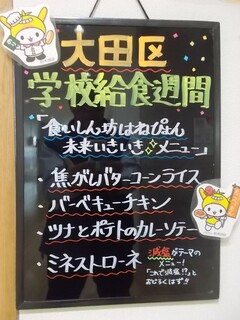 大田区
学校給食週間
「食いしん坊はねぴょん
未来いきいきメニュー」
・焦がしバターコーンライス
・バーベキューチキン
・ツナとポテトのカレーソテー
・ミネストローネ
減塩がテーマの
メニュー！
「これで減塩!?」と
おどろくはず!!